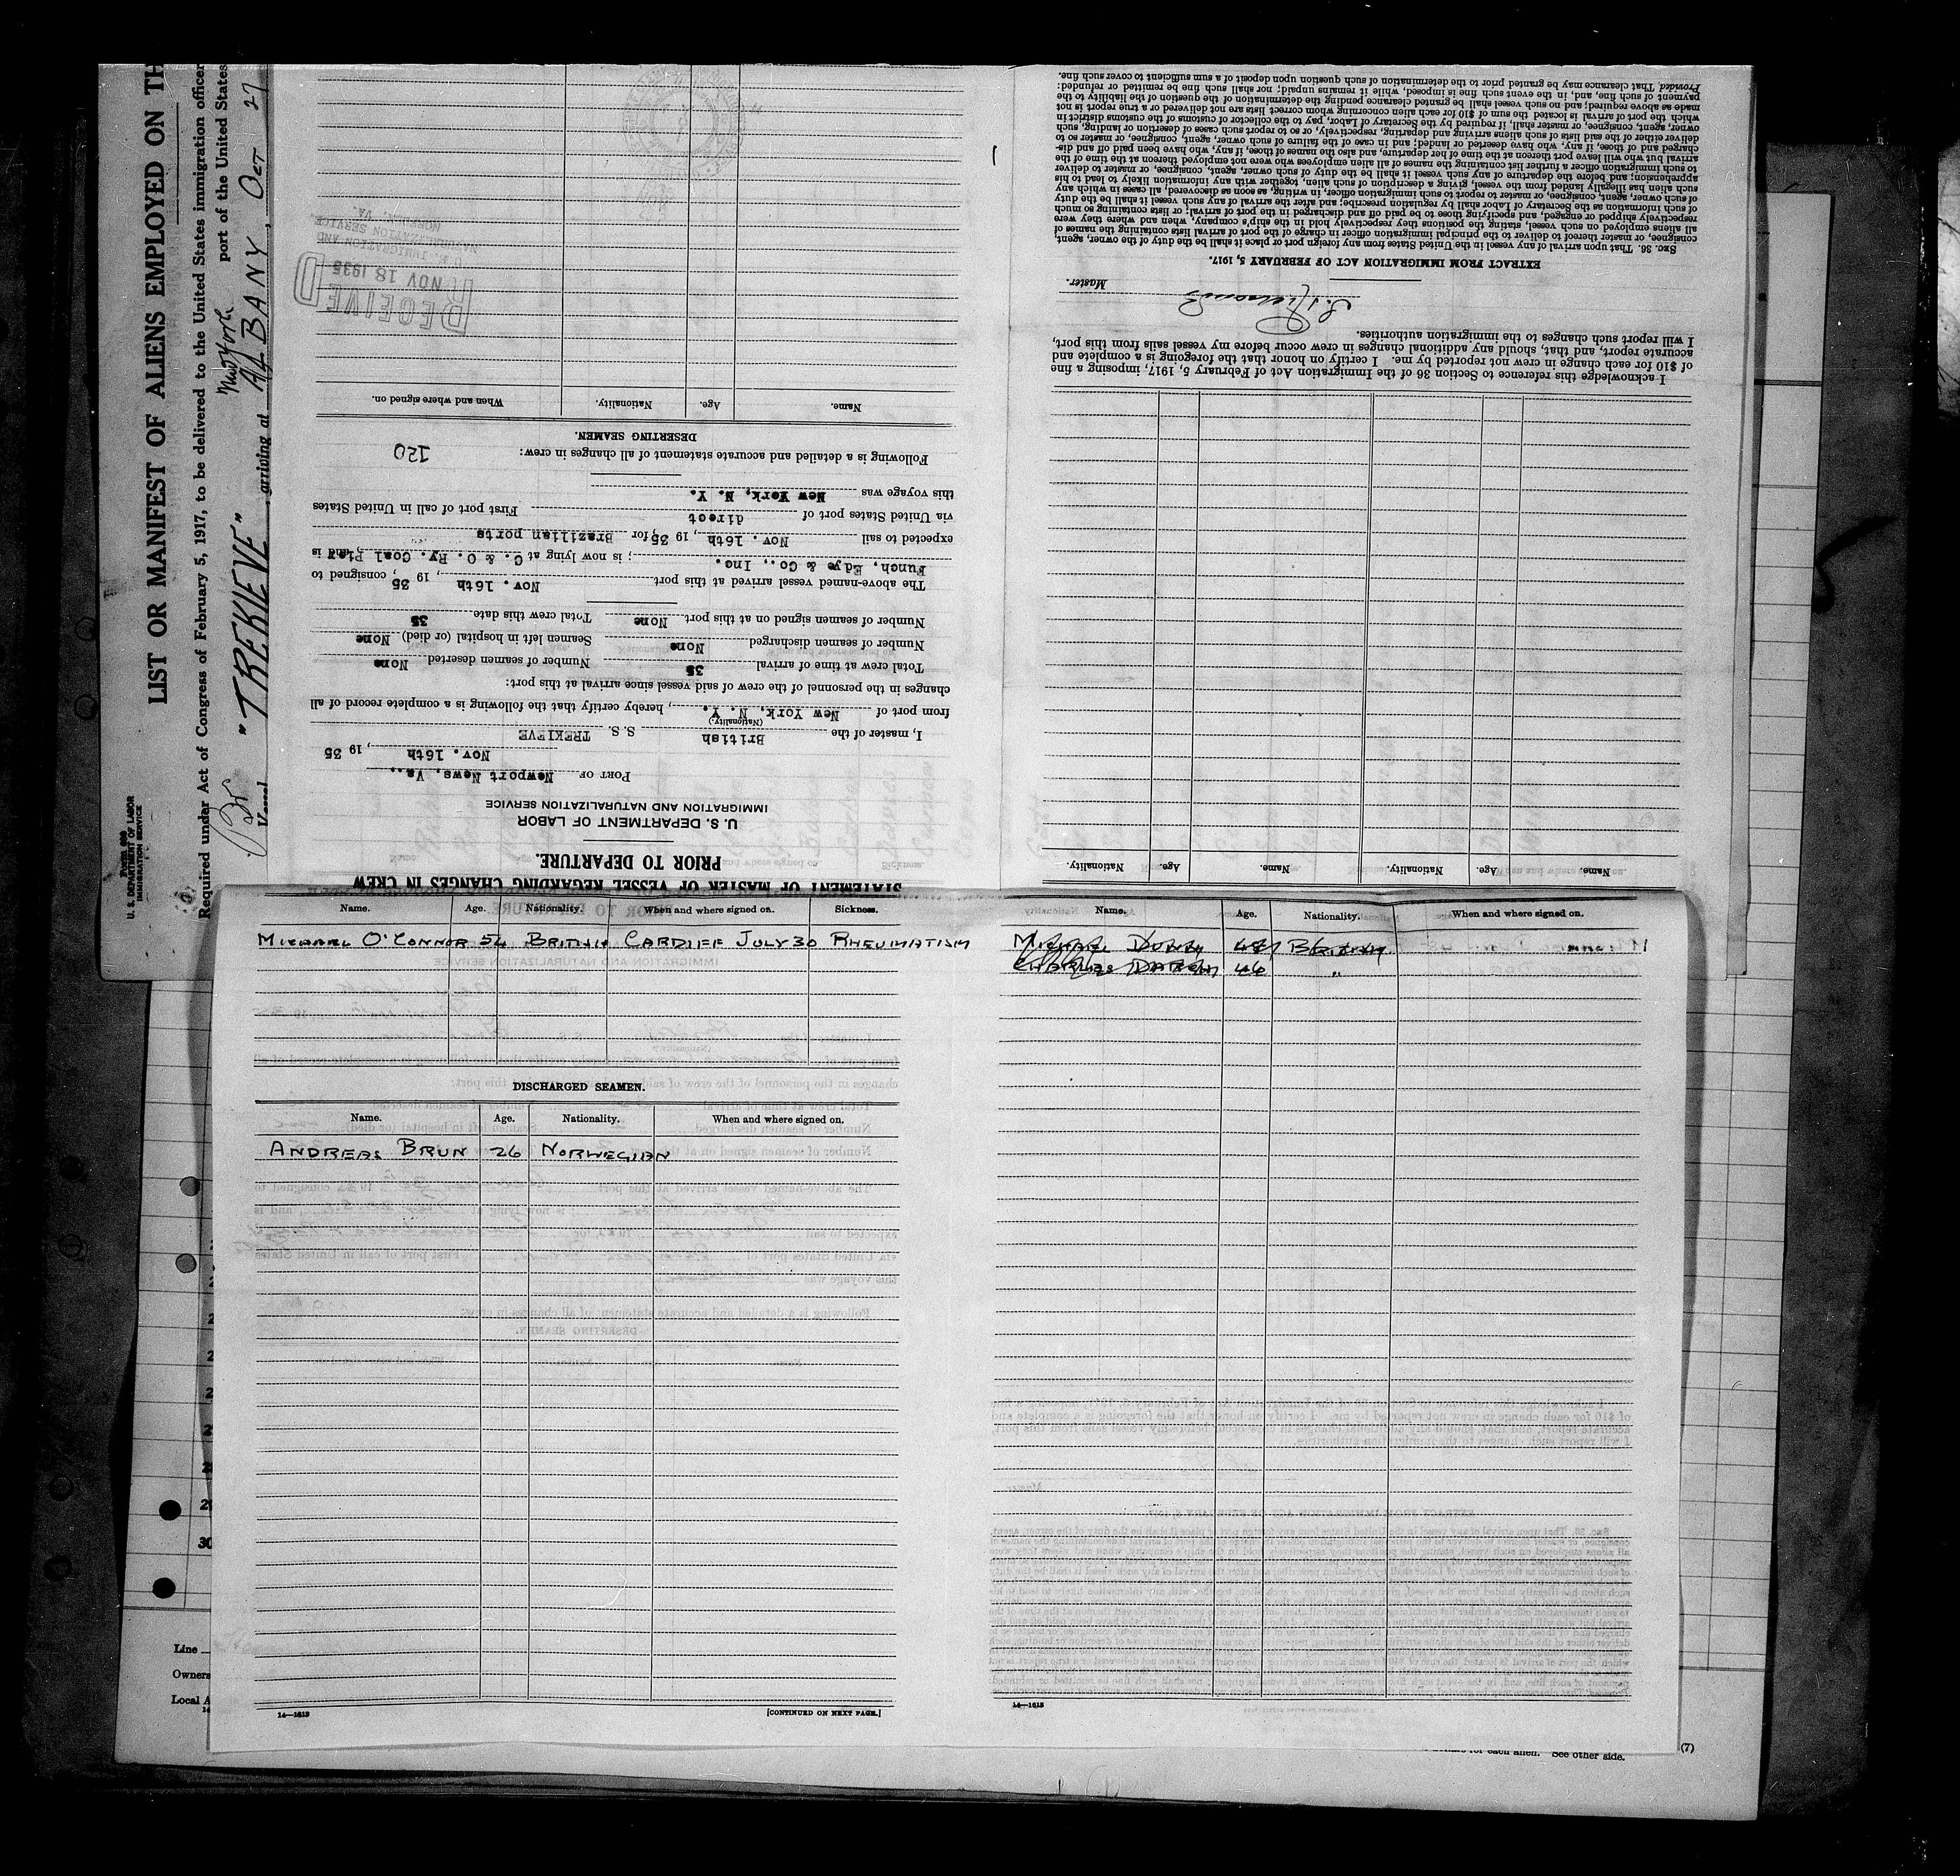 LIST OR MANIFEST OF ALIENS EMPLOYED ON TH
Required under Act of Congress of February 5, 1917, to be delivered to the United States immigration officer
port of the United States
New York
Br
Vessel "TREKIEVE", arriving at ALBANY, OCT 27
Form 689
U. S. DEPARTMENT OF LABOR
IMMIGRATION SERVICE
STATEMENT OF MASTER OF VESSEL REGARDING CHANGES IN CREW
PRIOR TO DEPARTURE.
U. S. DEPARTMENT OF LABOR
IMMIGRATION AND NATURALIZATION SERVICE
PORT OF Newport News, Va.,
Nov. 16th, 19 35
I, master of the British S. S. TREKIEVE
(Nationality)
from port of New York, N. Y., hereby certify that the following is a complete record of all
changes in the personnel of the crew of said vessel since arrival at this port:
Total crew at time of arrival 35 Number of seamen deserted None
Number of seamen discharged None Seamen left in hospital (or died) None
Number of seamen signed on at this port None Total crew this date 35
The above-named vessel arrived at this port Nov. 16th, 19 35, consigned to
Funch, Edye & Co., Inc.; is now lying at C. & O. Ry. Coal Pier, and is
expected to sail Nov. 16th, 19 35, for Brazilian ports
via United States port of direct First port of call in United States
this voyage was New York, N. Y.
Following is a detailed and accurate statement of all changes in crew: 120
DESERTING SEAMEN.
Name. Age. Nationality. When and where signed on.
RECEIVED
NOV 18 1935
U. S. IMMIGRATION AND
NATURALIZATION SERVICE
NORFOLK, VA.
Name. Age. Nationality. Name. Age. Nationality.
I acknowledge this reference to Section 36 of the Immigration Act of February 5, 1917, imposing a fine
of $10 for each change in crew not reported by me. I certify on honor that the foregoing is a complete and
accurate report, and that, should any additional changes in crew occur before my vessel sails from this port,
I will report such changes to the immigration authorities.
Master.
EXTRACT FROM IMMIGRATION ACT OF FEBRUARY 5, 1917.
SEC. 36. That upon arrival of any vessel in the United States from any foreign port or place it shall be the duty of the owner, agent,
consignee, or master thereof to deliver to the principal immigration officer in charge of the port of arrival lists containing the names of
all aliens employed on such vessel, stating the positions they respectively hold in the ship's company, when and where they were
respectively shipped or engaged, and specifying those to be paid off and discharged in the port of arrival; or lists containing so much
of such information as the Secretary of Labor shall by regulation prescribe; and after the arrival of any such vessel it shall be the duty
of such owner, agent, consignee, or master to report to such immigration officer, in writing, as soon as discovered, all cases in which any
such alien has illegally landed from the vessel, giving a description of such alien, together with any information likely to lead to his
apprehension; and before the departure of any such vessel it shall be the duty of such owner, agent, consignee, or master to deliver
to such immigration officer a further list containing the names of all alien employees who were not employed thereon at the time of the
arrival but who will leave port thereon at the time of her departure, and also the names of those, if any, who have been paid off and dis-
charged and of those, if any, who have deserted or landed; and in case of the failure of such owner, agent, consignee, or master so to
deliver either of the said lists of such aliens arriving and departing, respectively, or so to report such cases of desertion or landing, such
owner, agent, consignee, or master, shall, if required by the Secretary of Labor, pay to the collector of customs of the customs district in
which the port of arrival is located the sum of $10 for each alien concerning whom correct lists are not delivered or a true report is not
made as above required; and no such vessel shall be granted clearance pending the determination of the question of the liability to the
payment of such fine, and, in the event such fine is imposed, while it remains unpaid; nor shall such fine be remitted or refunded:
Provided, That clearance may be granted prior to the determination of such question upon deposit of a sum sufficient to cover such fine.
Name. Age. Nationality. When and where signed on. Sickness.
MICHAEL O'CONNOR 54 BRITISH CARDIFF JULY 30 RHEUMATISM
DISCHARGED SEAMEN.
Name. Age. Nationality. When and where signed on.
ANDREAS BRUN 26 NORWEGIAN
14—1613 [CONTINUED ON NEXT PAGE.]
Name. Age. Nationality. When and where signed on.
MICHAEL 48 BRITISH
CHARLES 46 "
14—1613
30
Line
Owners
Local A
for each alien. See other side.
(7)